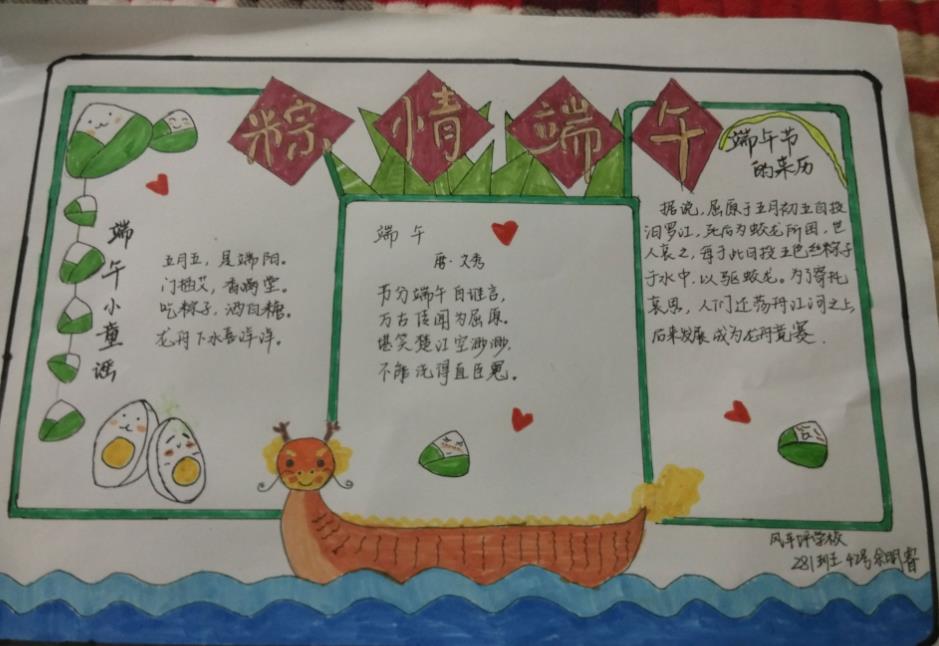 粽情端午
端午小童谣
五月五，是端阳。
门插艾，香满堂。
吃粽子，洒白糖。
龙舟下水喜洋洋。
端午
唐·文秀
节分端午自谁言，
万古传闻为屈原。
堪笑楚江空渺渺，
不能洗得直臣冤。
端午节
的来历
据说，屈原于五月初五自投
汨罗江，死后为蛟龙所困，世
人哀之，每于此日投五色丝粽子
于水中，以驱蛟龙。为了寄托
哀思，人们还荡舟江河之上，
后来发展成为龙舟竞赛．
学校
281班 42号余明睿